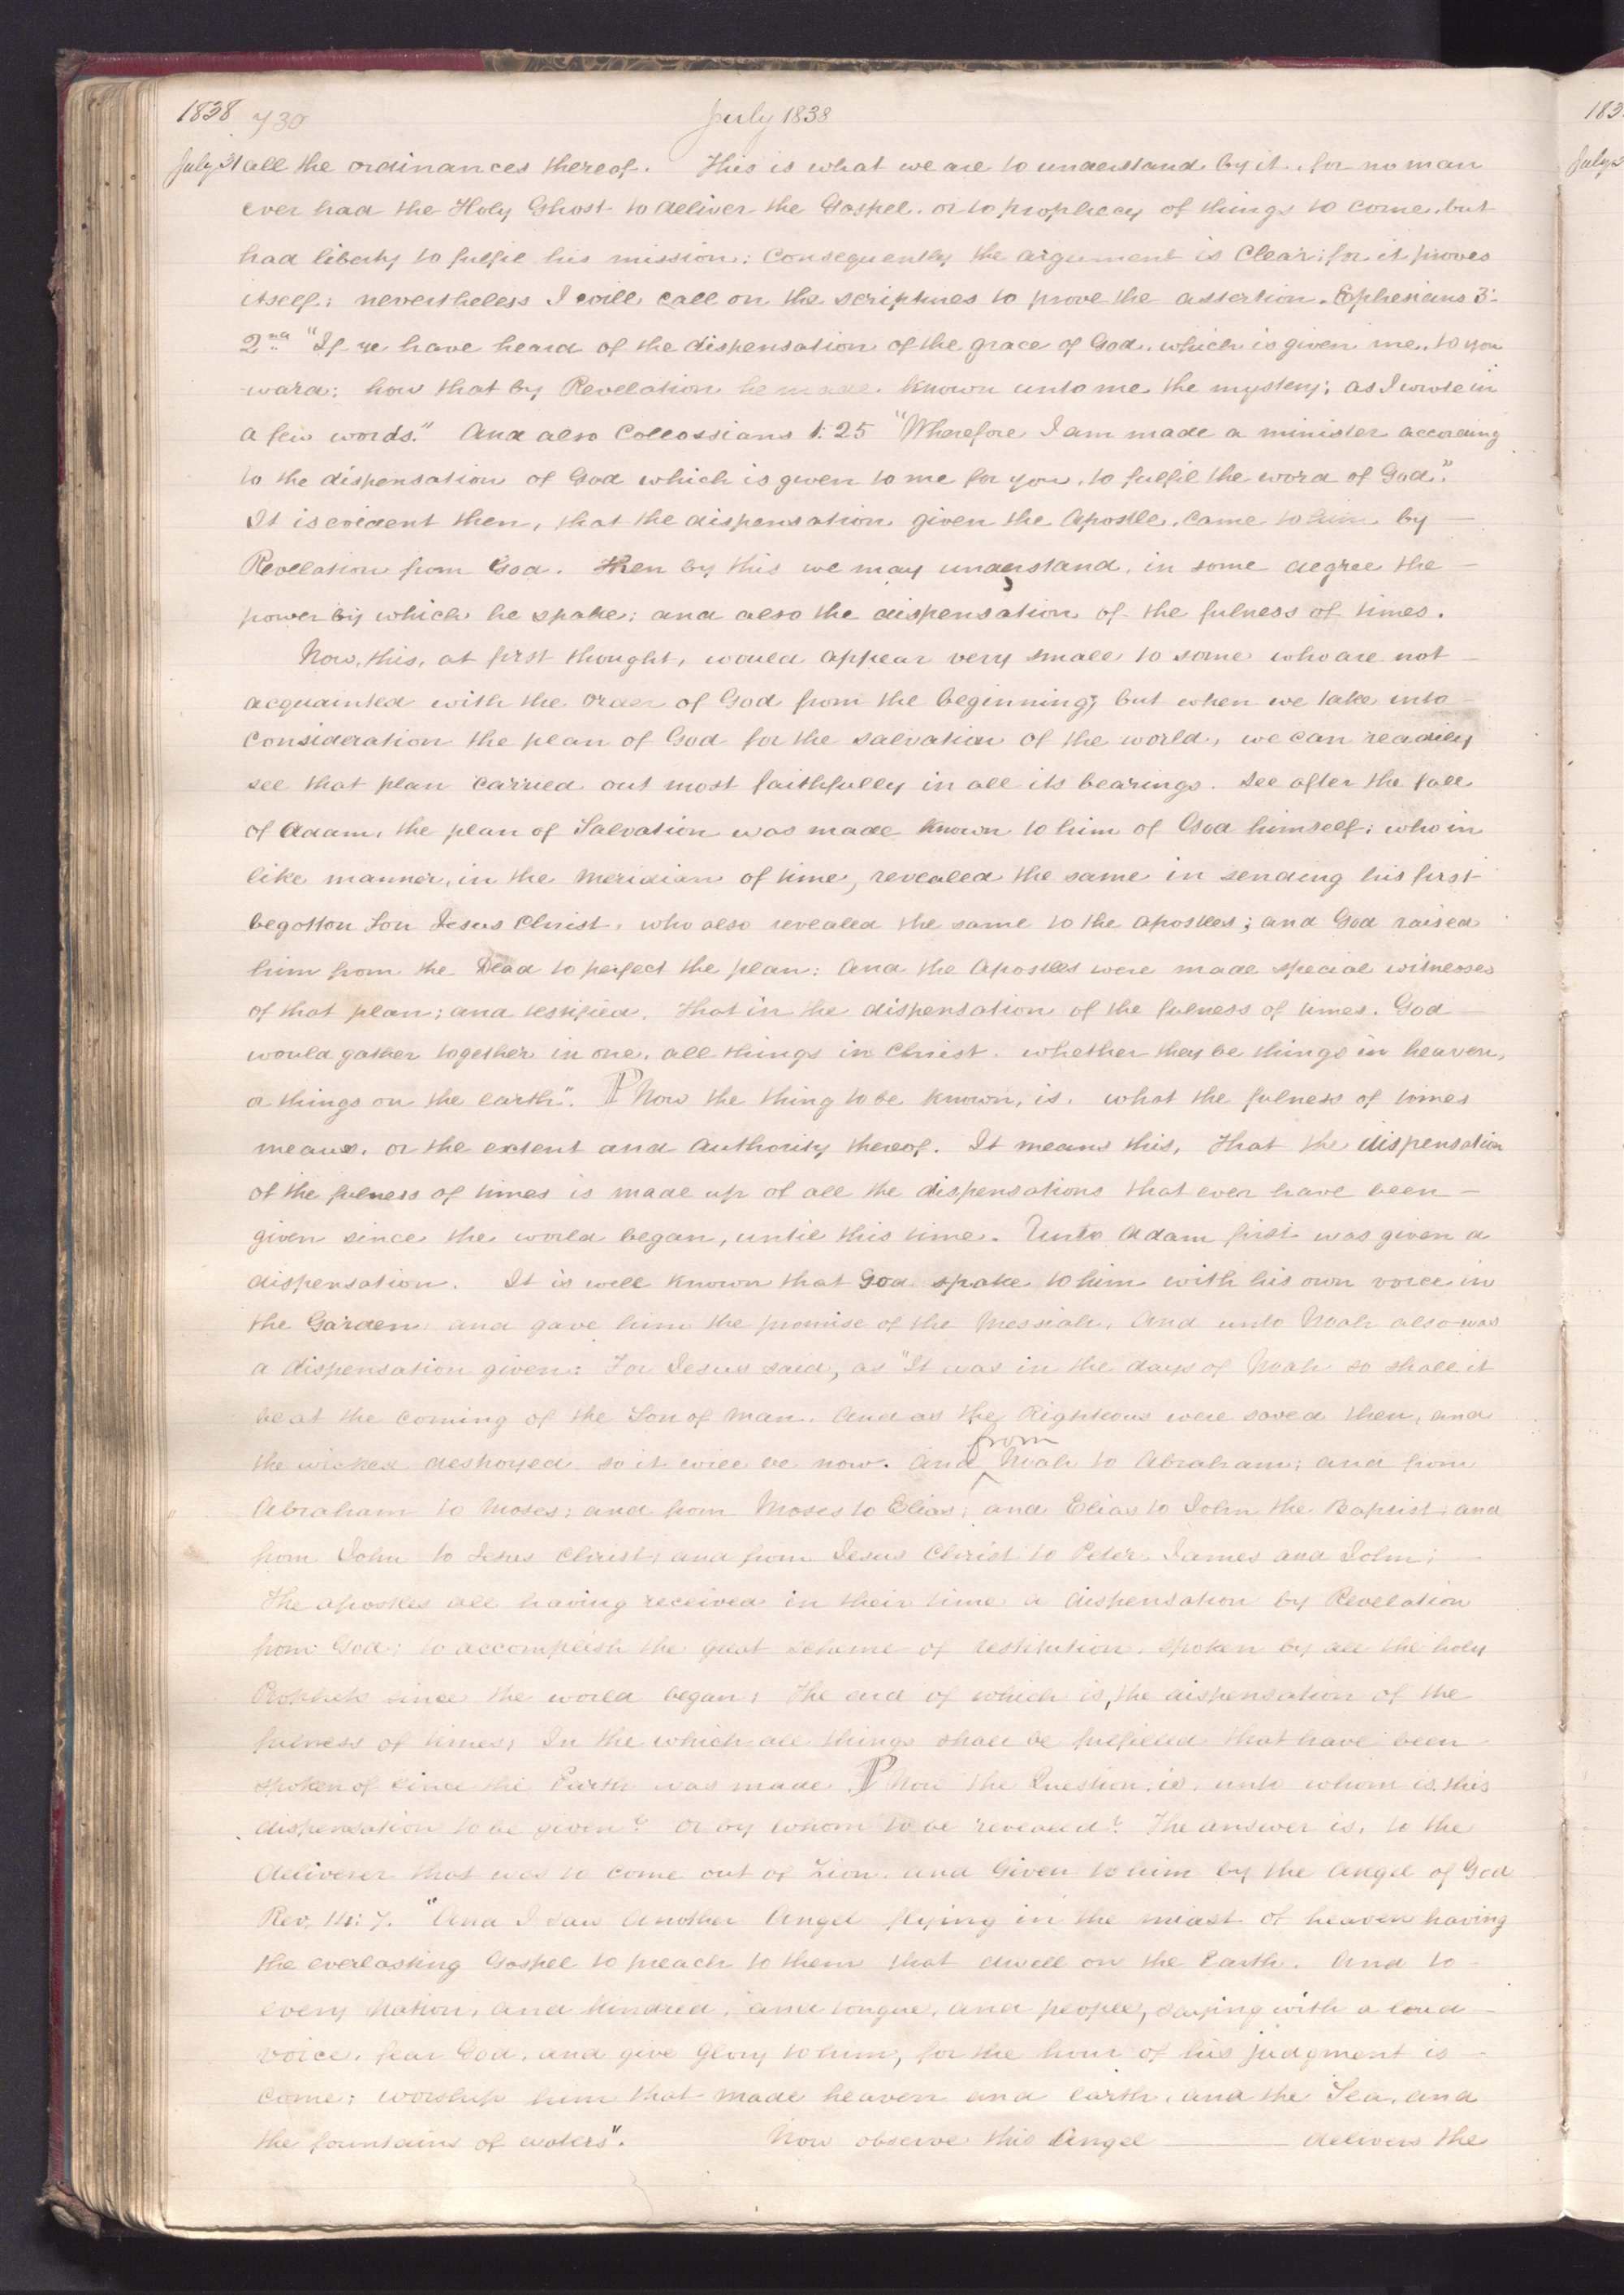 1838 730 July 1838
July 31 all the ordinances thereof. This is what we are to understand by it, for no man
ever had the Holy Ghost to deliver the Gospel, or to prophecy of things to come, but
had liberty to fulfil his mission; Consequently the argument is Clear; for it proves
itself; nevertheless I will call on the scriptures to prove the assertion. Ephesians 3:
2nd "If ye have heard of the dispensation of the grace of God, which is given me, to you
ward; how that by Revelation he made known unto me the mystery; as I wrote in
a few words." And also Collossians 1: 25 "Wherefore I am made a minister according
to the dispensation of God which is given to me for you, to fulfil the word of God."
It is evident then, that the dispensation given the Apostle, came to him by —
Revelation from God. Then by this we may understand, in some degree the —
power by which he spake; and also the dispensation of the fulness of times.
Now, this, at first thought, would appear very small to some who are not —
acquainted with the order of God from the beginning; but when we take into —
consideration the plan of God for the salvation of the world, we can readily
see that plan carried out most faithfully in all its bearings. See after the fall
of Adam, the plan of Salvation was made known to him of God himself; who in
like manner, in the Meridian of time, revealed the same in sending his first
begotton Son Jesus Christ, who also revealed the same to the apostles; and God raised
him from the Dead to perfect the plan; And the Apostles were made special witnesses
of that plan; and testified, that in the dispensation of the fulness of times, God —
would gather together in one, all things in Christ, whether they be things in heaven,
or things on the earth". ℙ Now the thing to be known, is, what the fulness of times
means, or the extent and authority thereof. It means this, that the dispensation
of the fulness of times is made up of all the dispensations that ever have been —
given since the world began, until this time. Unto Adam first was given a
dispensation. It is well known that God spake to him with his own voice in
the Garden, and gave him the promise of the Messiah. And unto Noah also was
a dispensation given; For Jesus said, as "It was in the days of Noah so shall it
be at the coming of the Son of Man. And as the Righteous were saved then, and
the wicked destroyed so it will be now. And from Noah to Abraham; and from
Abraham to Moses; and from Moses to Elias; and Elias to John the Baptist; and
from John to Jesus Christ; and from Jesus Christ to Peter, James and John; —
The apostles all having received in their time a dispensation by Revelation
from God; to accomplish the great scheme of restitution, spoken by all the holy
Prophets since the world began; the end of which is, the dispensation of the
fulness of times; In the which all things shall be fulfilled that have been
spoken of since the Earth was made. ℙ Now the Question is, unto whom is this
dispensation to be given? or by whom to be revealed? The answer is, to the
deliverer that was to come out of Zion, and Given to him by the Angel of God
Rev. 14: 7. "And I saw Another Angel flying in the midst of heaven having
the everlasting Gospel to preach to them that dwell on the Earth, And to —
every Nation, and Kindred, and tongue, and people, saying with a loud —
voice, fear God, and give Glory to him, for the hour of his judgment is —
come; worship him that made heaven and earth, and the Sea, and
the fountains of waters". Now observe this Angel —— delivers the
183
July 3